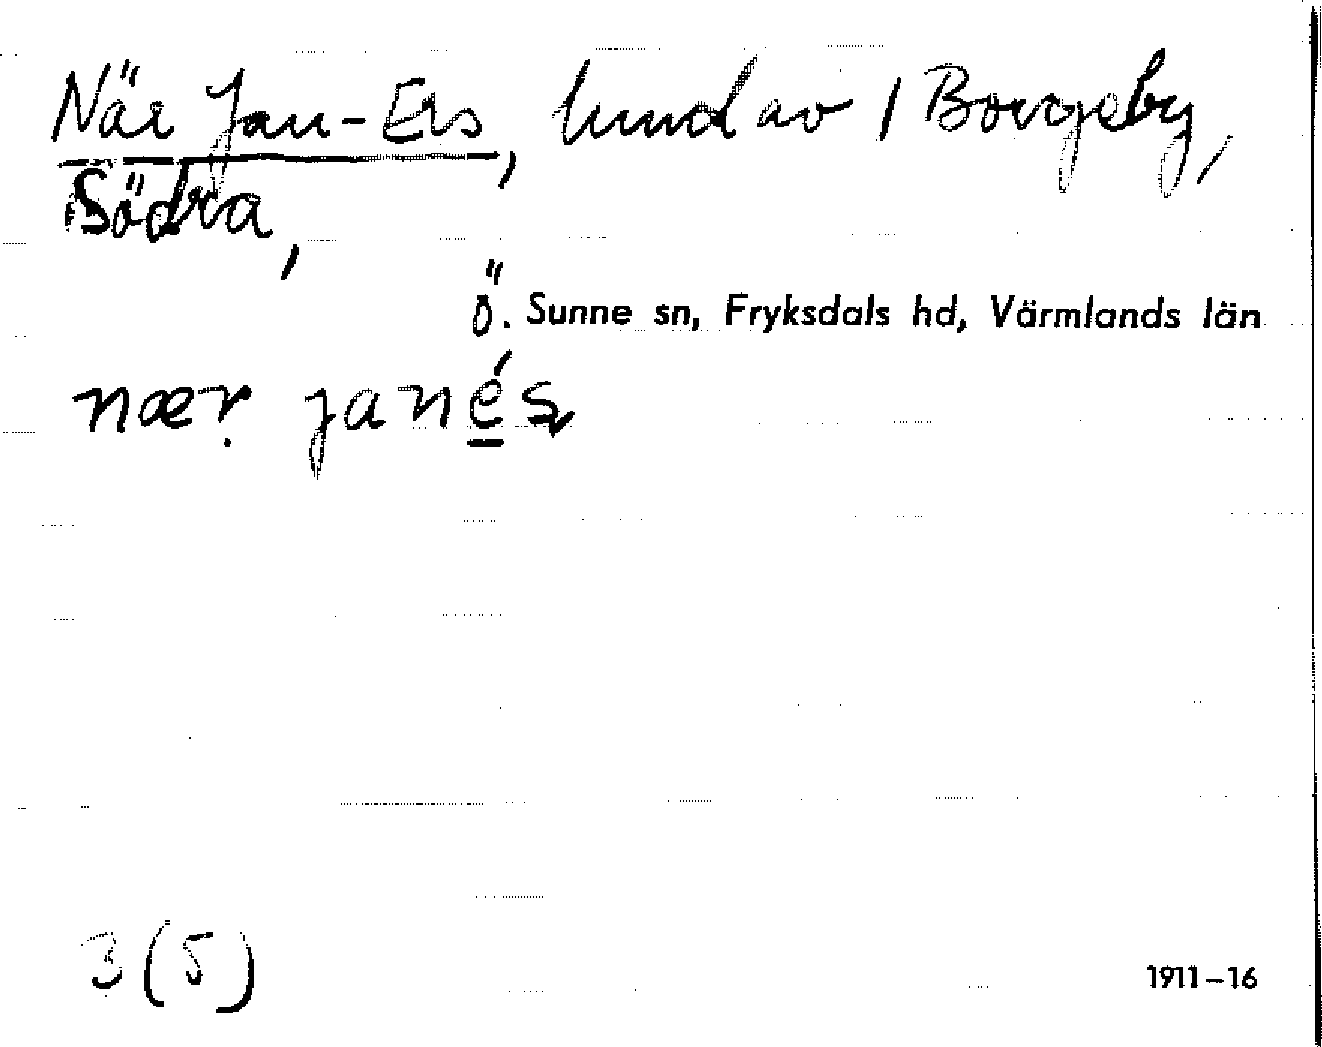 När Jan-Ers, hmd av 1 Borgeby,
Södra,
Ö. Sunne sn, Fryksdals hd, Värmlands län
næṛ janés
3(5)
1911–16